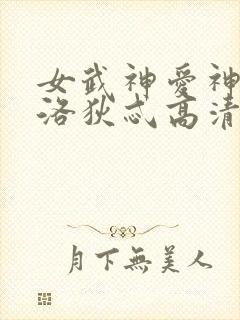 女武神愛神
洛狄忒高清
月下無美人